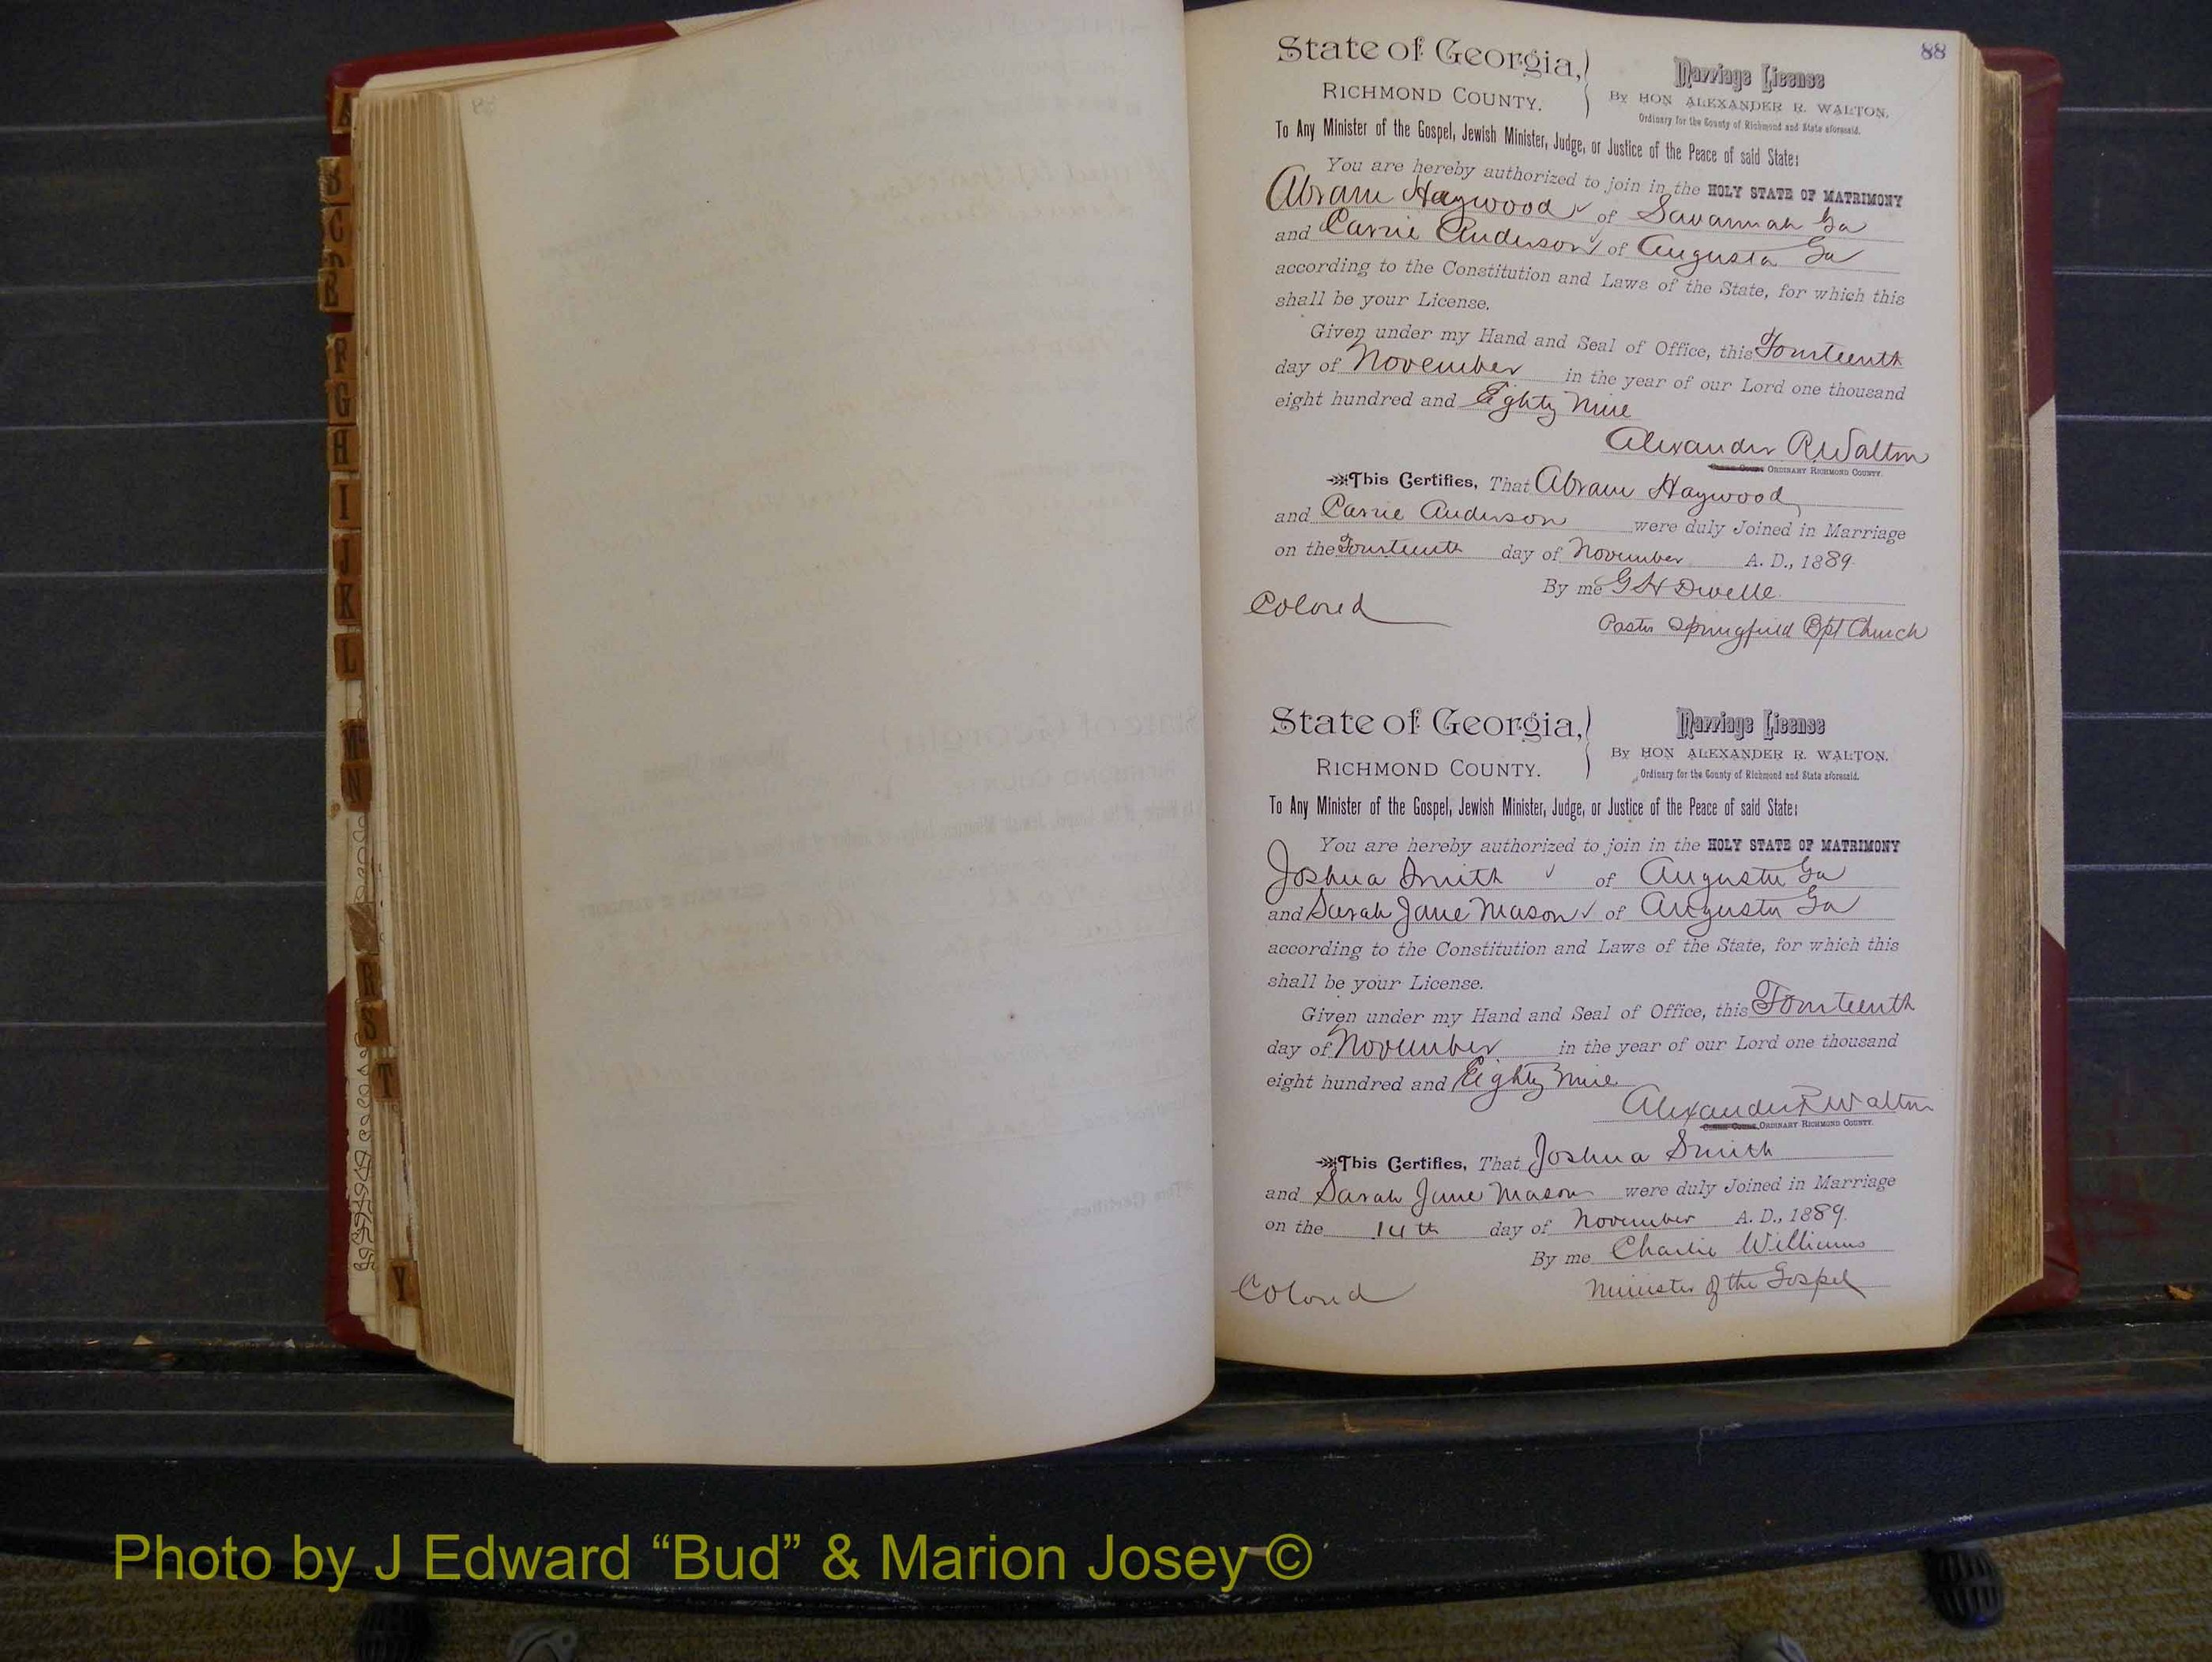 88
State of Georgia,
RICHMOND COUNTY.
Marriage License
By HON ALEXANDER R. WALTON,
Ordinary for the County of Richmond and State aforesaid.
To Any Minister of the Gospel, Jewish Minister, Judge, or Justice of the Peace of said State:
You are hereby authorized to join in the HOLY STATE OF MATRIMONY
Abram Haywood of Savannah Ga
and Carrie Anderson of Augusta Ga
according to the Constitution and Laws of the State, for which this
shall be your License.
Given under my Hand and Seal of Office, this Fourteenth
day of November in the year of our Lord one thousand
eight hundred and Eighty Nine
Alexander R Walton
ORDINARY RICHMOND COUNTY.
This Certifies, That Abram Haywood
and Carrie Anderson were duly Joined in Marriage
on the Fourteenth day of November A. D., 1889.
By me G H Dwelle
Colored
Pastor Springfield Bpt Church
State of Georgia,
RICHMOND COUNTY.
Marriage License
By HON ALEXANDER R. WALTON,
Ordinary for the County of Richmond and State aforesaid.
To Any Minister of the Gospel, Jewish Minister, Judge, or Justice of the Peace of said State:
You are hereby authorized to join in the HOLY STATE OF MATRIMONY
Joshua Smith of Augusta Ga
and Sarah Jane Mason of Augusta Ga
according to the Constitution and Laws of the State, for which this
shall be your License.
Given under my Hand and Seal of Office, this Fourteenth
day of November in the year of our Lord one thousand
eight hundred and Eighty Nine
Alexander R Walton
ORDINARY RICHMOND COUNTY.
This Certifies, That Joshua Smith
and Sarah Jane Mason were duly Joined in Marriage
on the 14th day of November A. D., 1889.
By me Charlie Williams
Colored
Minister of the Gospel
B
C
F
G
H
I
J
K
L
Mc
N
R
S
T
Y
Photo by J Edward “Bud” & Marion Josey ©